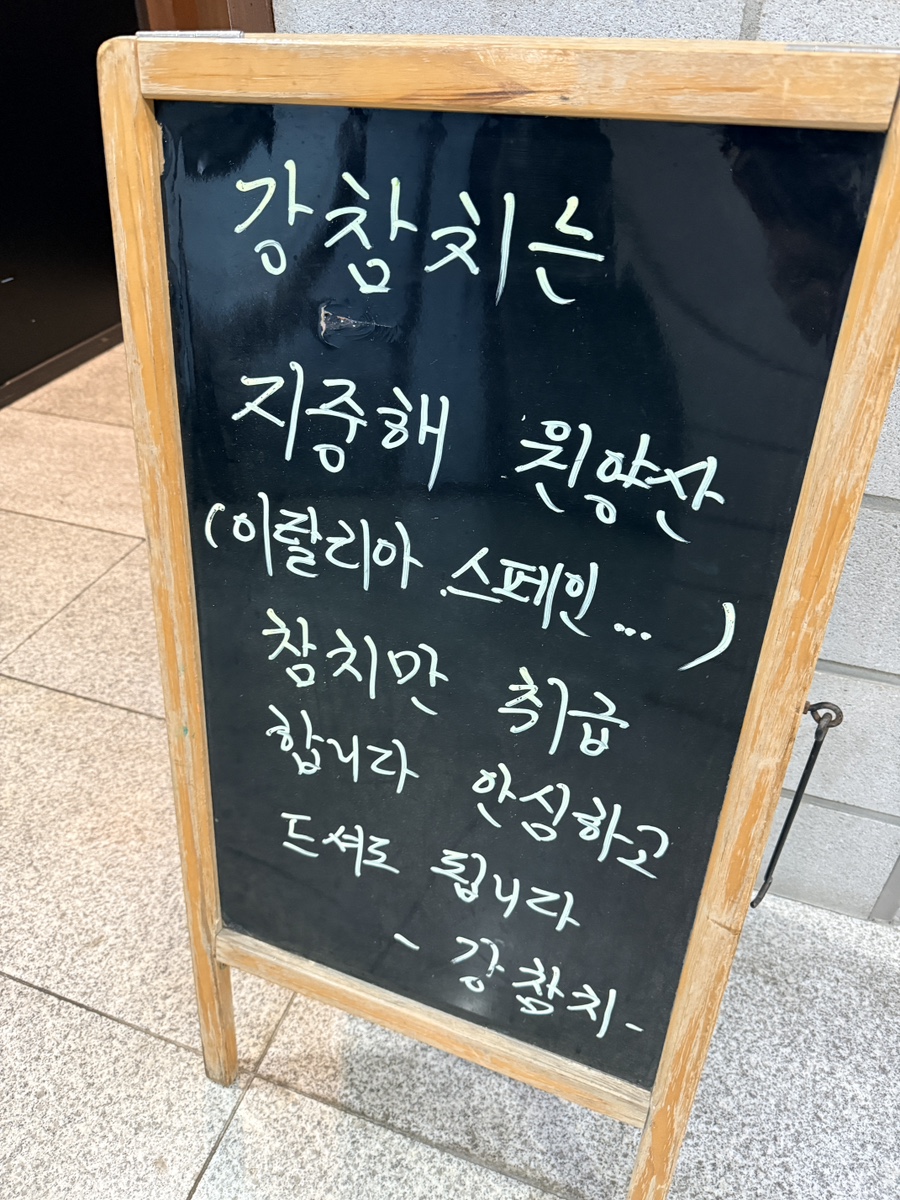 강참치는
지중해 원양산
(이탈리아 스페인... )
참치만 취급
합니다 안심하고
드셔도 됩니다
- 강참치-